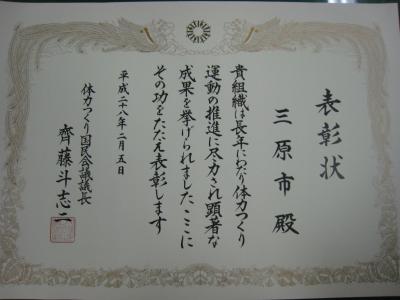 表彰状
三原市殿
貴組織は長年にわたり体力つくり
運動の推進に尽力され顕著な
成果を挙げられました ここに
その功をたたえ表彰します
平成二十八年二月五日
体力つくり国民会議議長
齊藤斗志二